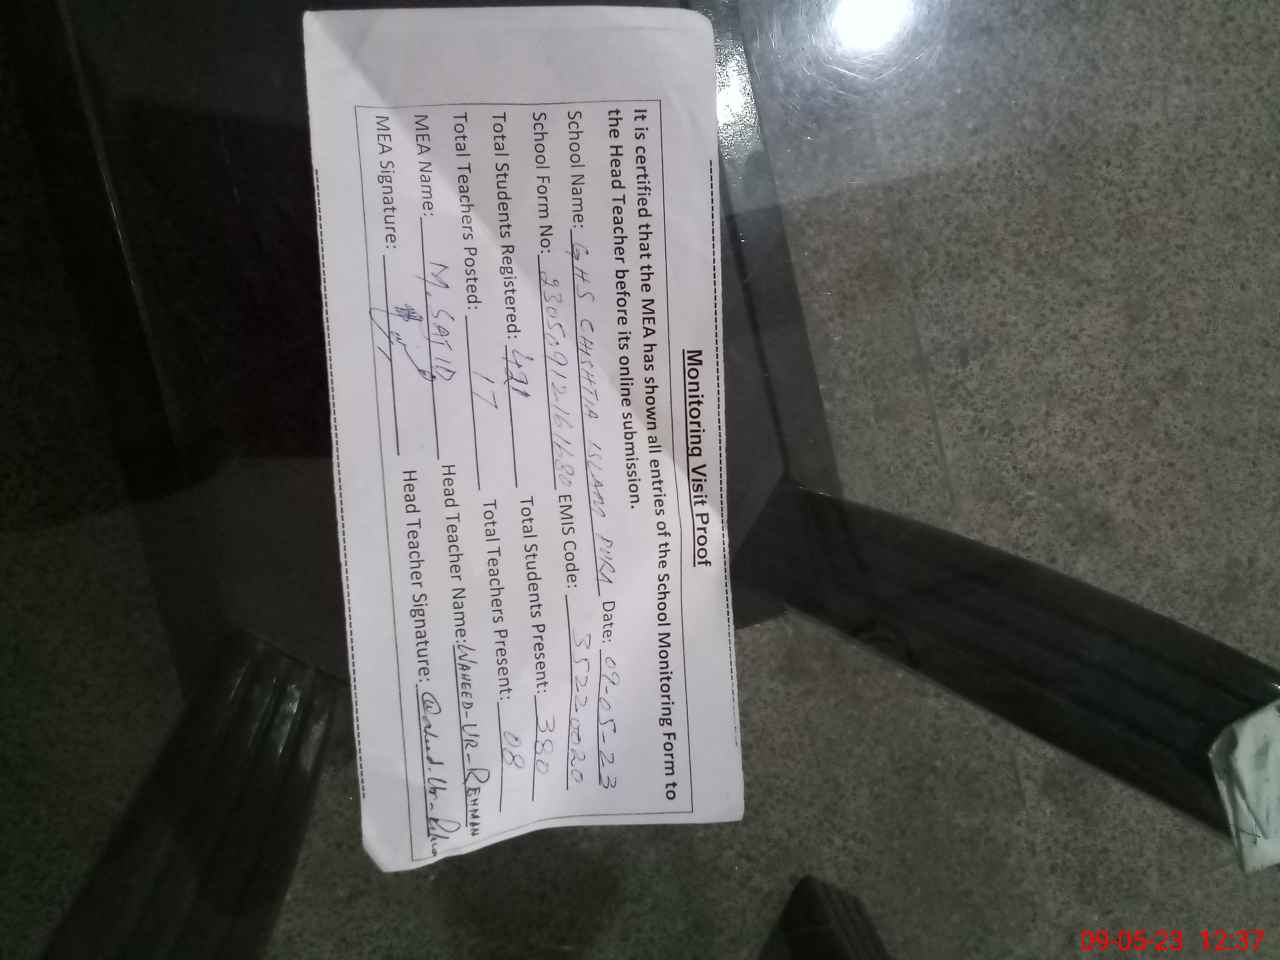 Monitoring Visit Proof
It is certified that the MEA has shown all entries of the School Monitoring Form to
the Head Teacher before its online submission.
School Name: GHS CHISHTIA ISLAM PURA Date: 09-05-23
School Form No: EMIS Code: 35220020
Total Students Registered: 421 Total Students Present: 380
Total Teachers Posted: 17 Total Teachers Present: 08
MEA Name: M. SAJID Head Teacher Name: WAHEED-UR-REHMAN
MEA Signature: Head Teacher Signature: Waheed-Ur-Rehman
09-05-23 12:37